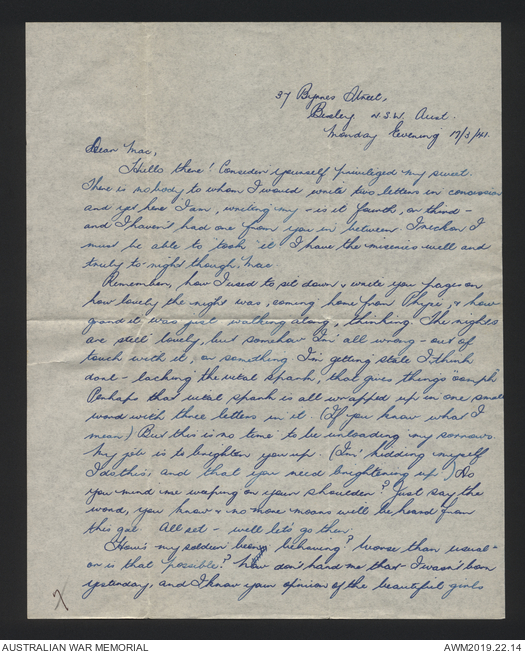 37 Byrnes Street,
Bexley N.S.W. Aust.
Monday Evening 17/3/41.
Dear Mac,
Hello there! Consider yourself privileged my sweet.
There is nobody to whom I would write two letters in concession
and yet here I am, writing my - is it fourth, or third -
and I haven't had one from you in between. I reckon I
must be able to "take" it I have the miseries well and
truly to-night though, Mac
Remember, how I used to sit down & write you pages on
how lovely the night was, coming home from Physi, & how
grand it was just walking along, thinking. The nights
are still lovely, but somehow I'm all wrong - out of
touch with it, or something I'm getting stale I think
dont - lacking the vital spark, that gives things "oomph"
Perhaps that vital spark is all wrapped up in one small
word with three letters in it. (If you know what I
mean) But this is no time to be unloading my sorrows.
My job is to brighten you up. (I'm kidding myself
I do this, and that you need brightening up.) Do
you mind me weeping on your shoulder? Just say the
word, you know & no more moans will be heard from
this gal. All set - well let's go then.
How's my soldier being behaving? Worse than usual -
or is that possible? Now don't hand me that I wasn't born
yesterday, and I know your opinion of the beautiful girls
AUSTRALIAN WAR MEMORIAL
AWM2019.22.14